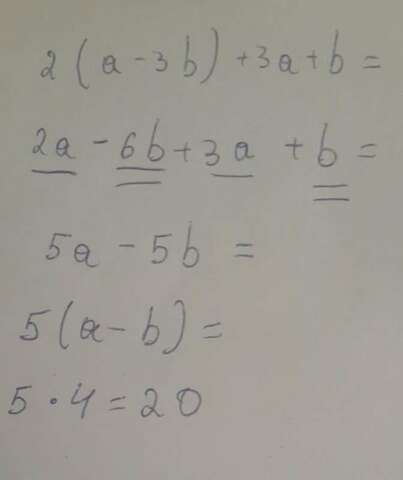 2(a-3b)+3a+b=
2a-6b+3a+b=
5a-5b=
5(a-b)=
5·4=20